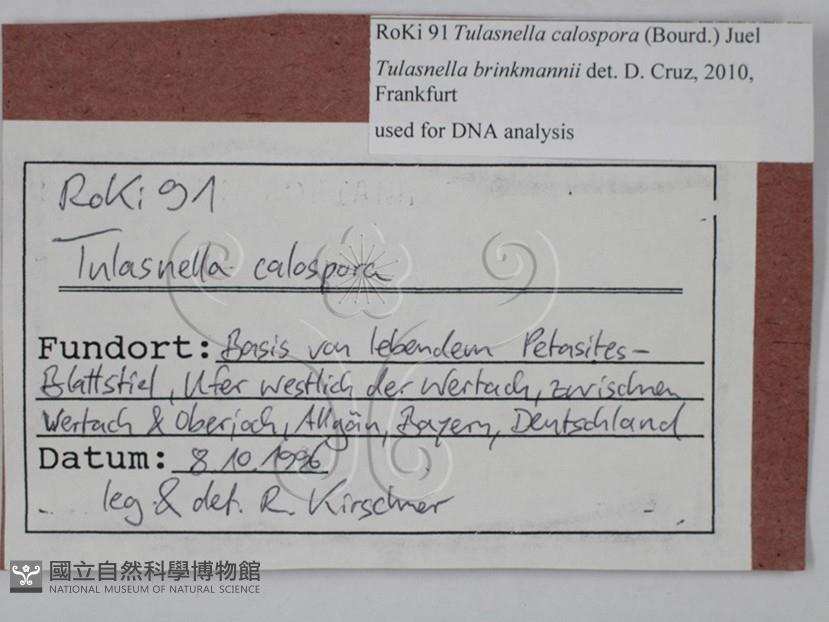 RoKi 91 Tulasnella calospora (Bourd.) Juel
Tulasnella brinkmannii det. D. Cruz, 2010,
Frankfurt
used for DNA analysis
RoKi 91
Tulasnella calospora
Fundort: Basis von lebendem Petasites-
Blattstiel, Ufer westlich der Wertach, zwischen
Wertach & Oberjoch, Allgäu, Bayern, Deutschland
Datum: 8.10.1996
leg. & det. R. Kirschner
國立自然科學博物館
NATIONAL MUSEUM OF NATURAL SCIENCE